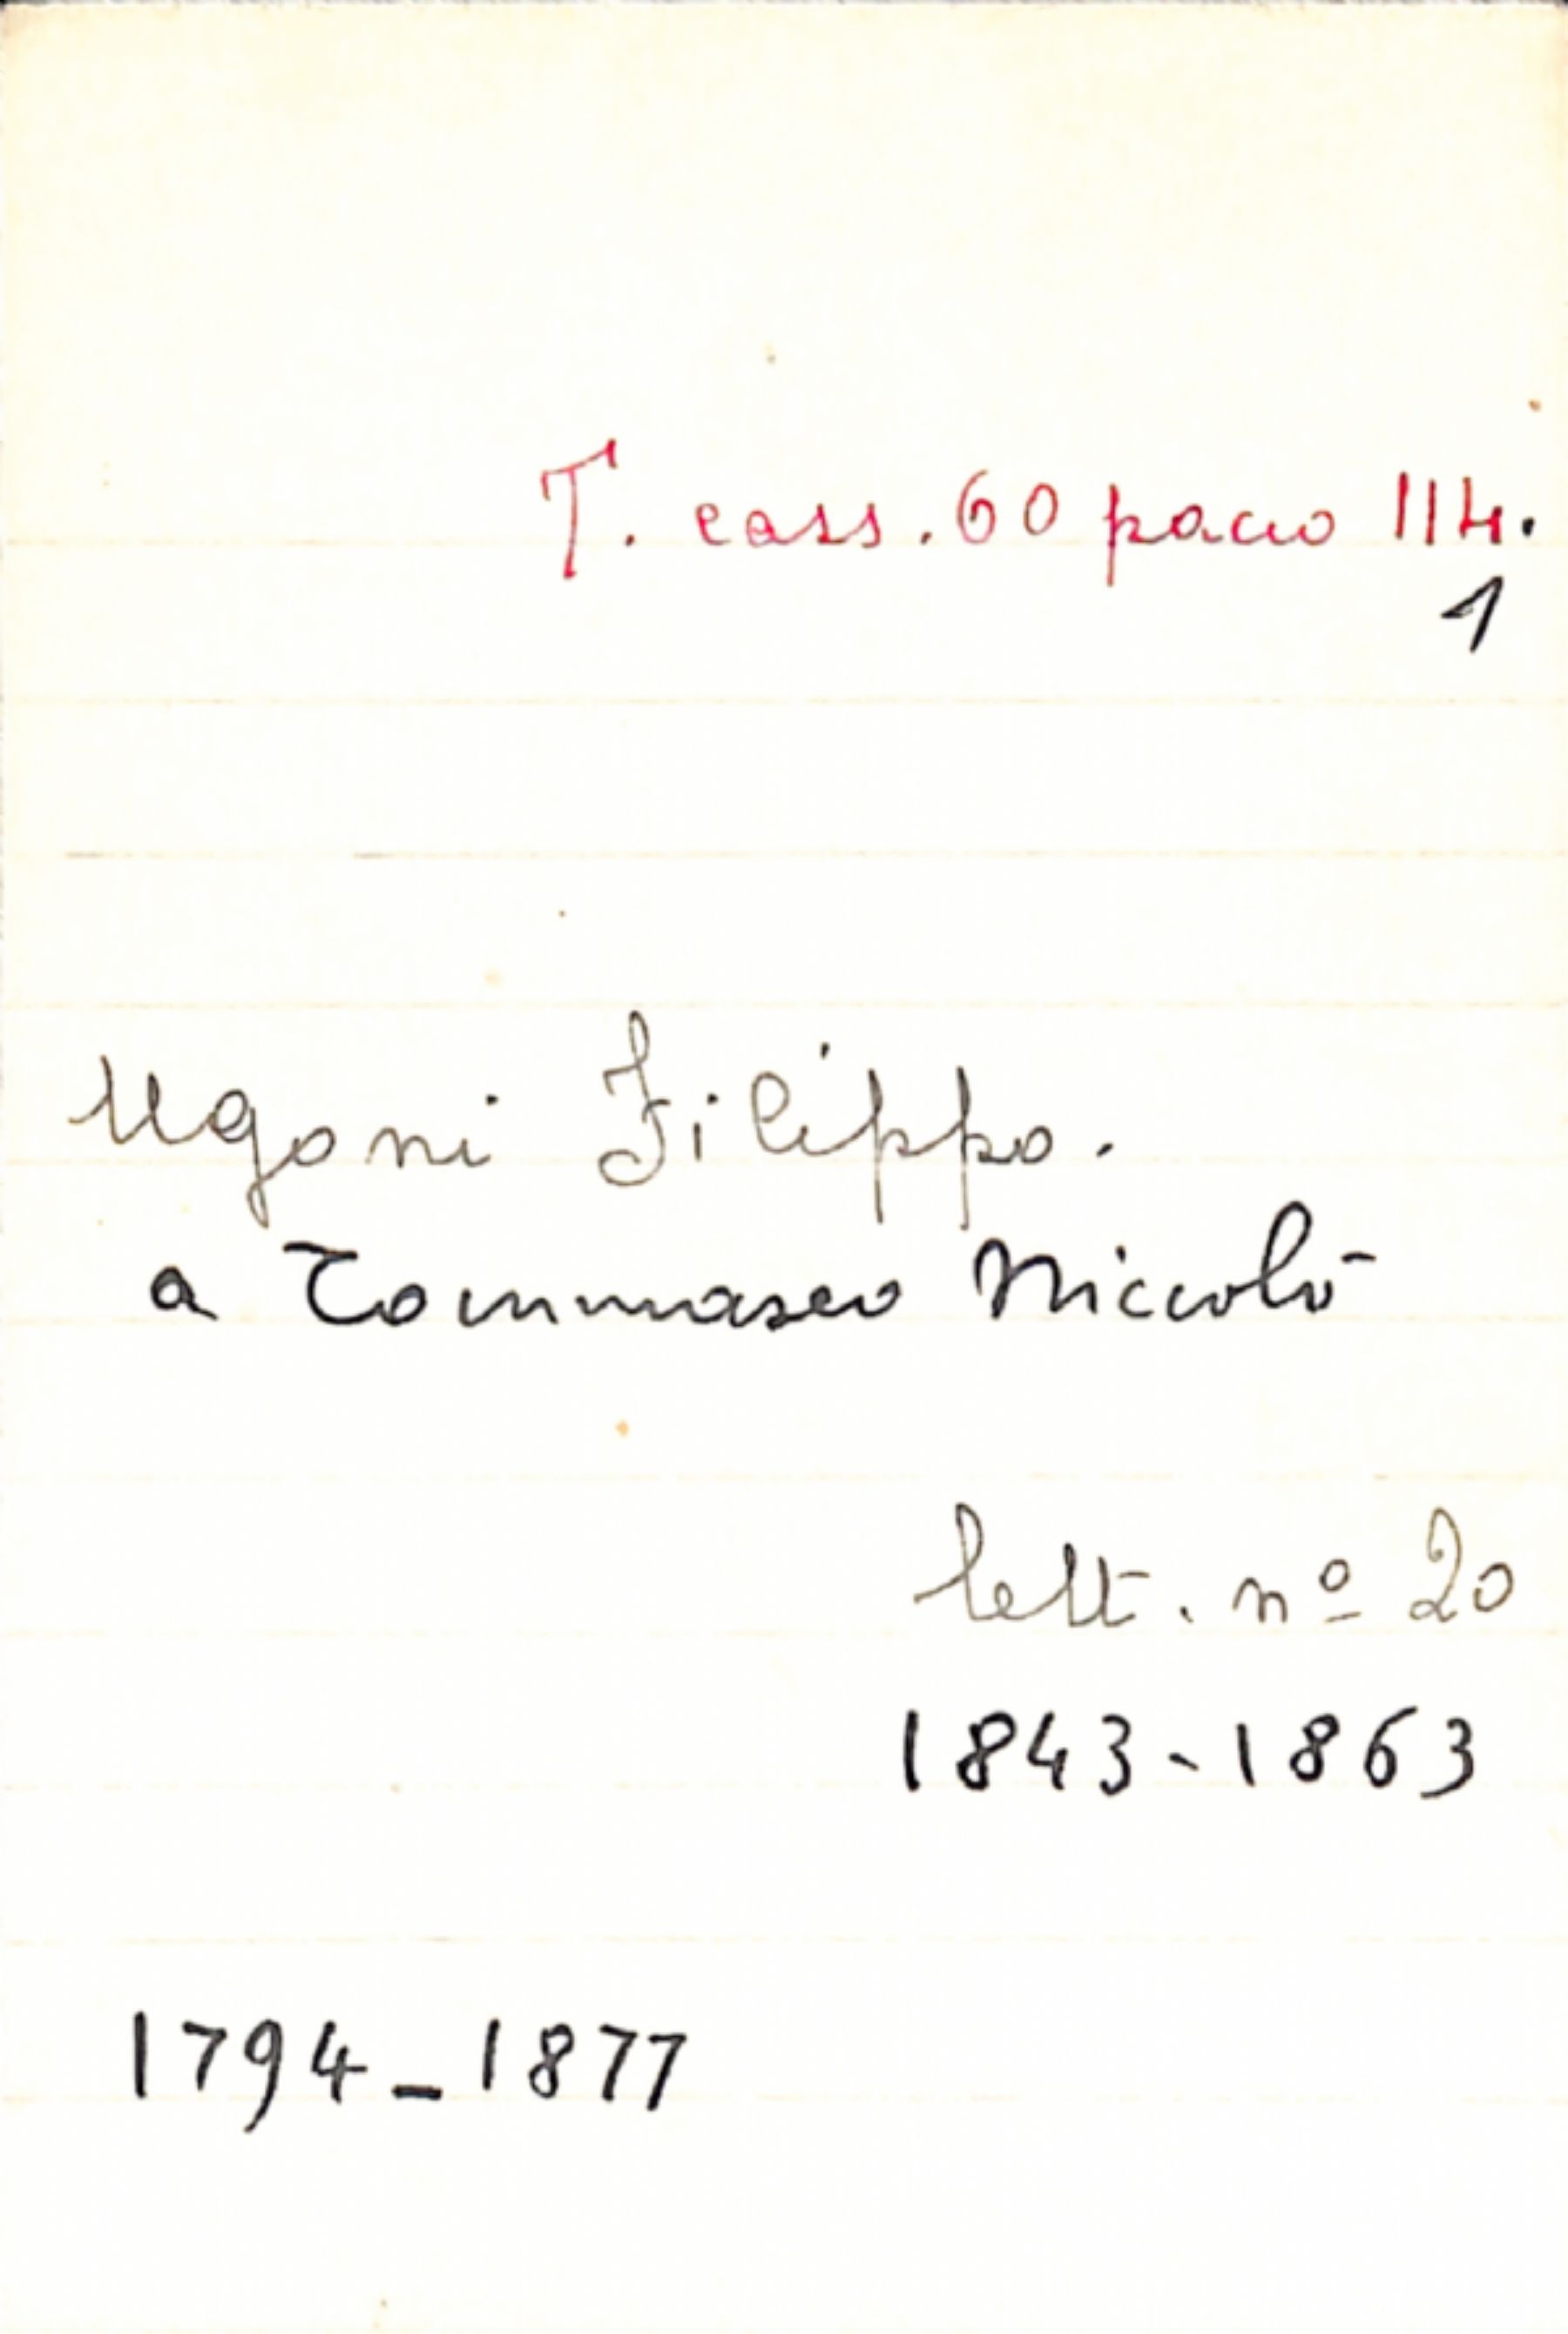 T. cass. 60 pacco 114.
1
Ugoni Filippo.
a Tommaseo Niccolò
lett. nº 20
1843-1863
1794-1877